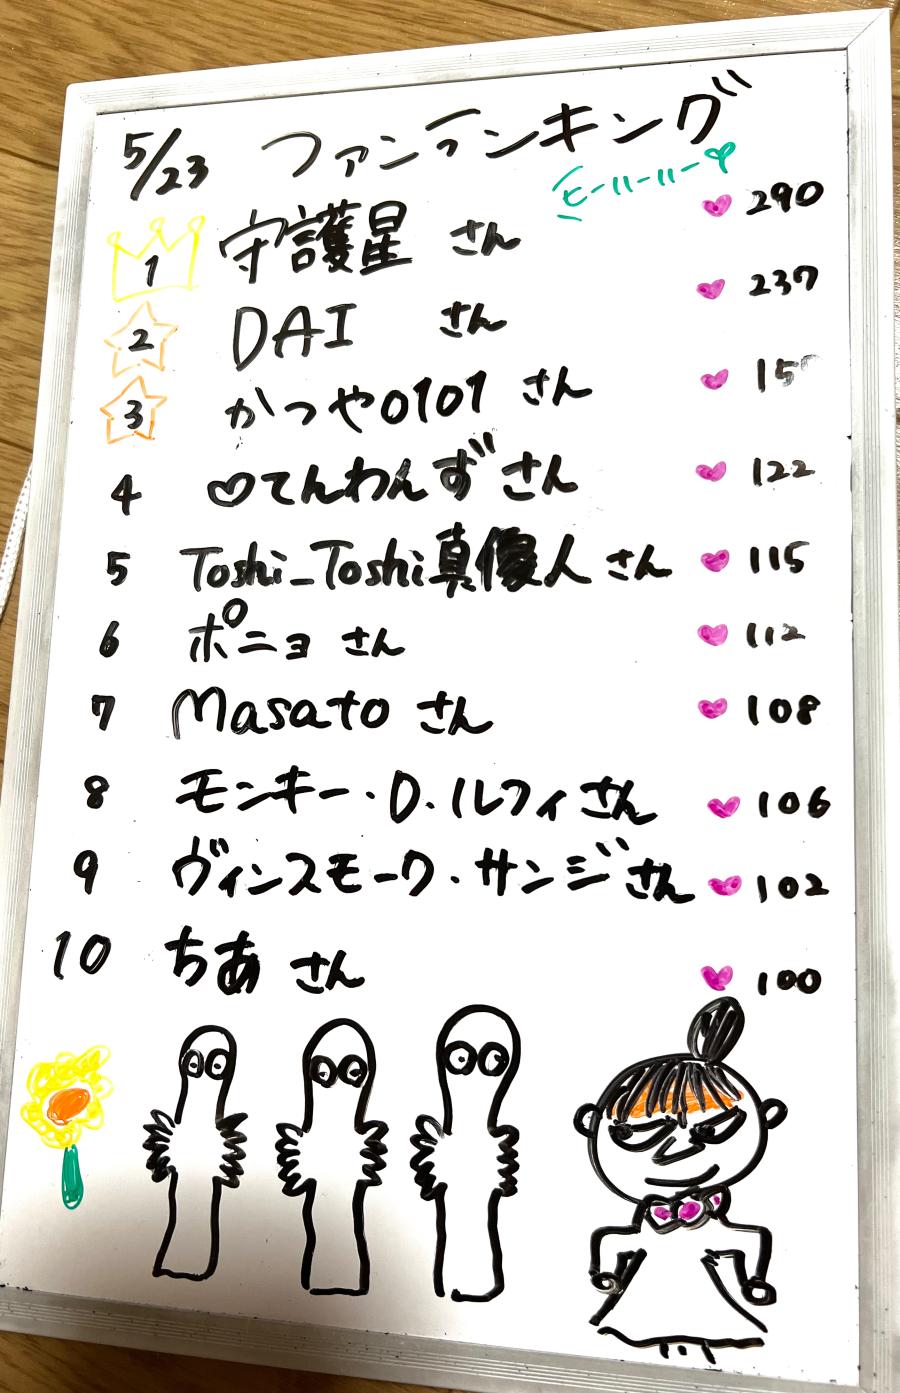 5/23 ファンランキング
1 守護星 さん ♥ 290
2 DAI さん ♥ 237
3 かつや0101 さん ♥
4 ♡てんわんず さん ♥ 122
5 Toshi_Toshi真像人 さん ♥ 115
6 ポニョ さん ♥ 112
7 Masato さん ♥ 108
8 モンキー・D・ルフィ さん ♥ 106
9 ヴィンスモーク・サンジ さん ♥ 102
10 ちあ さん ♥ 100